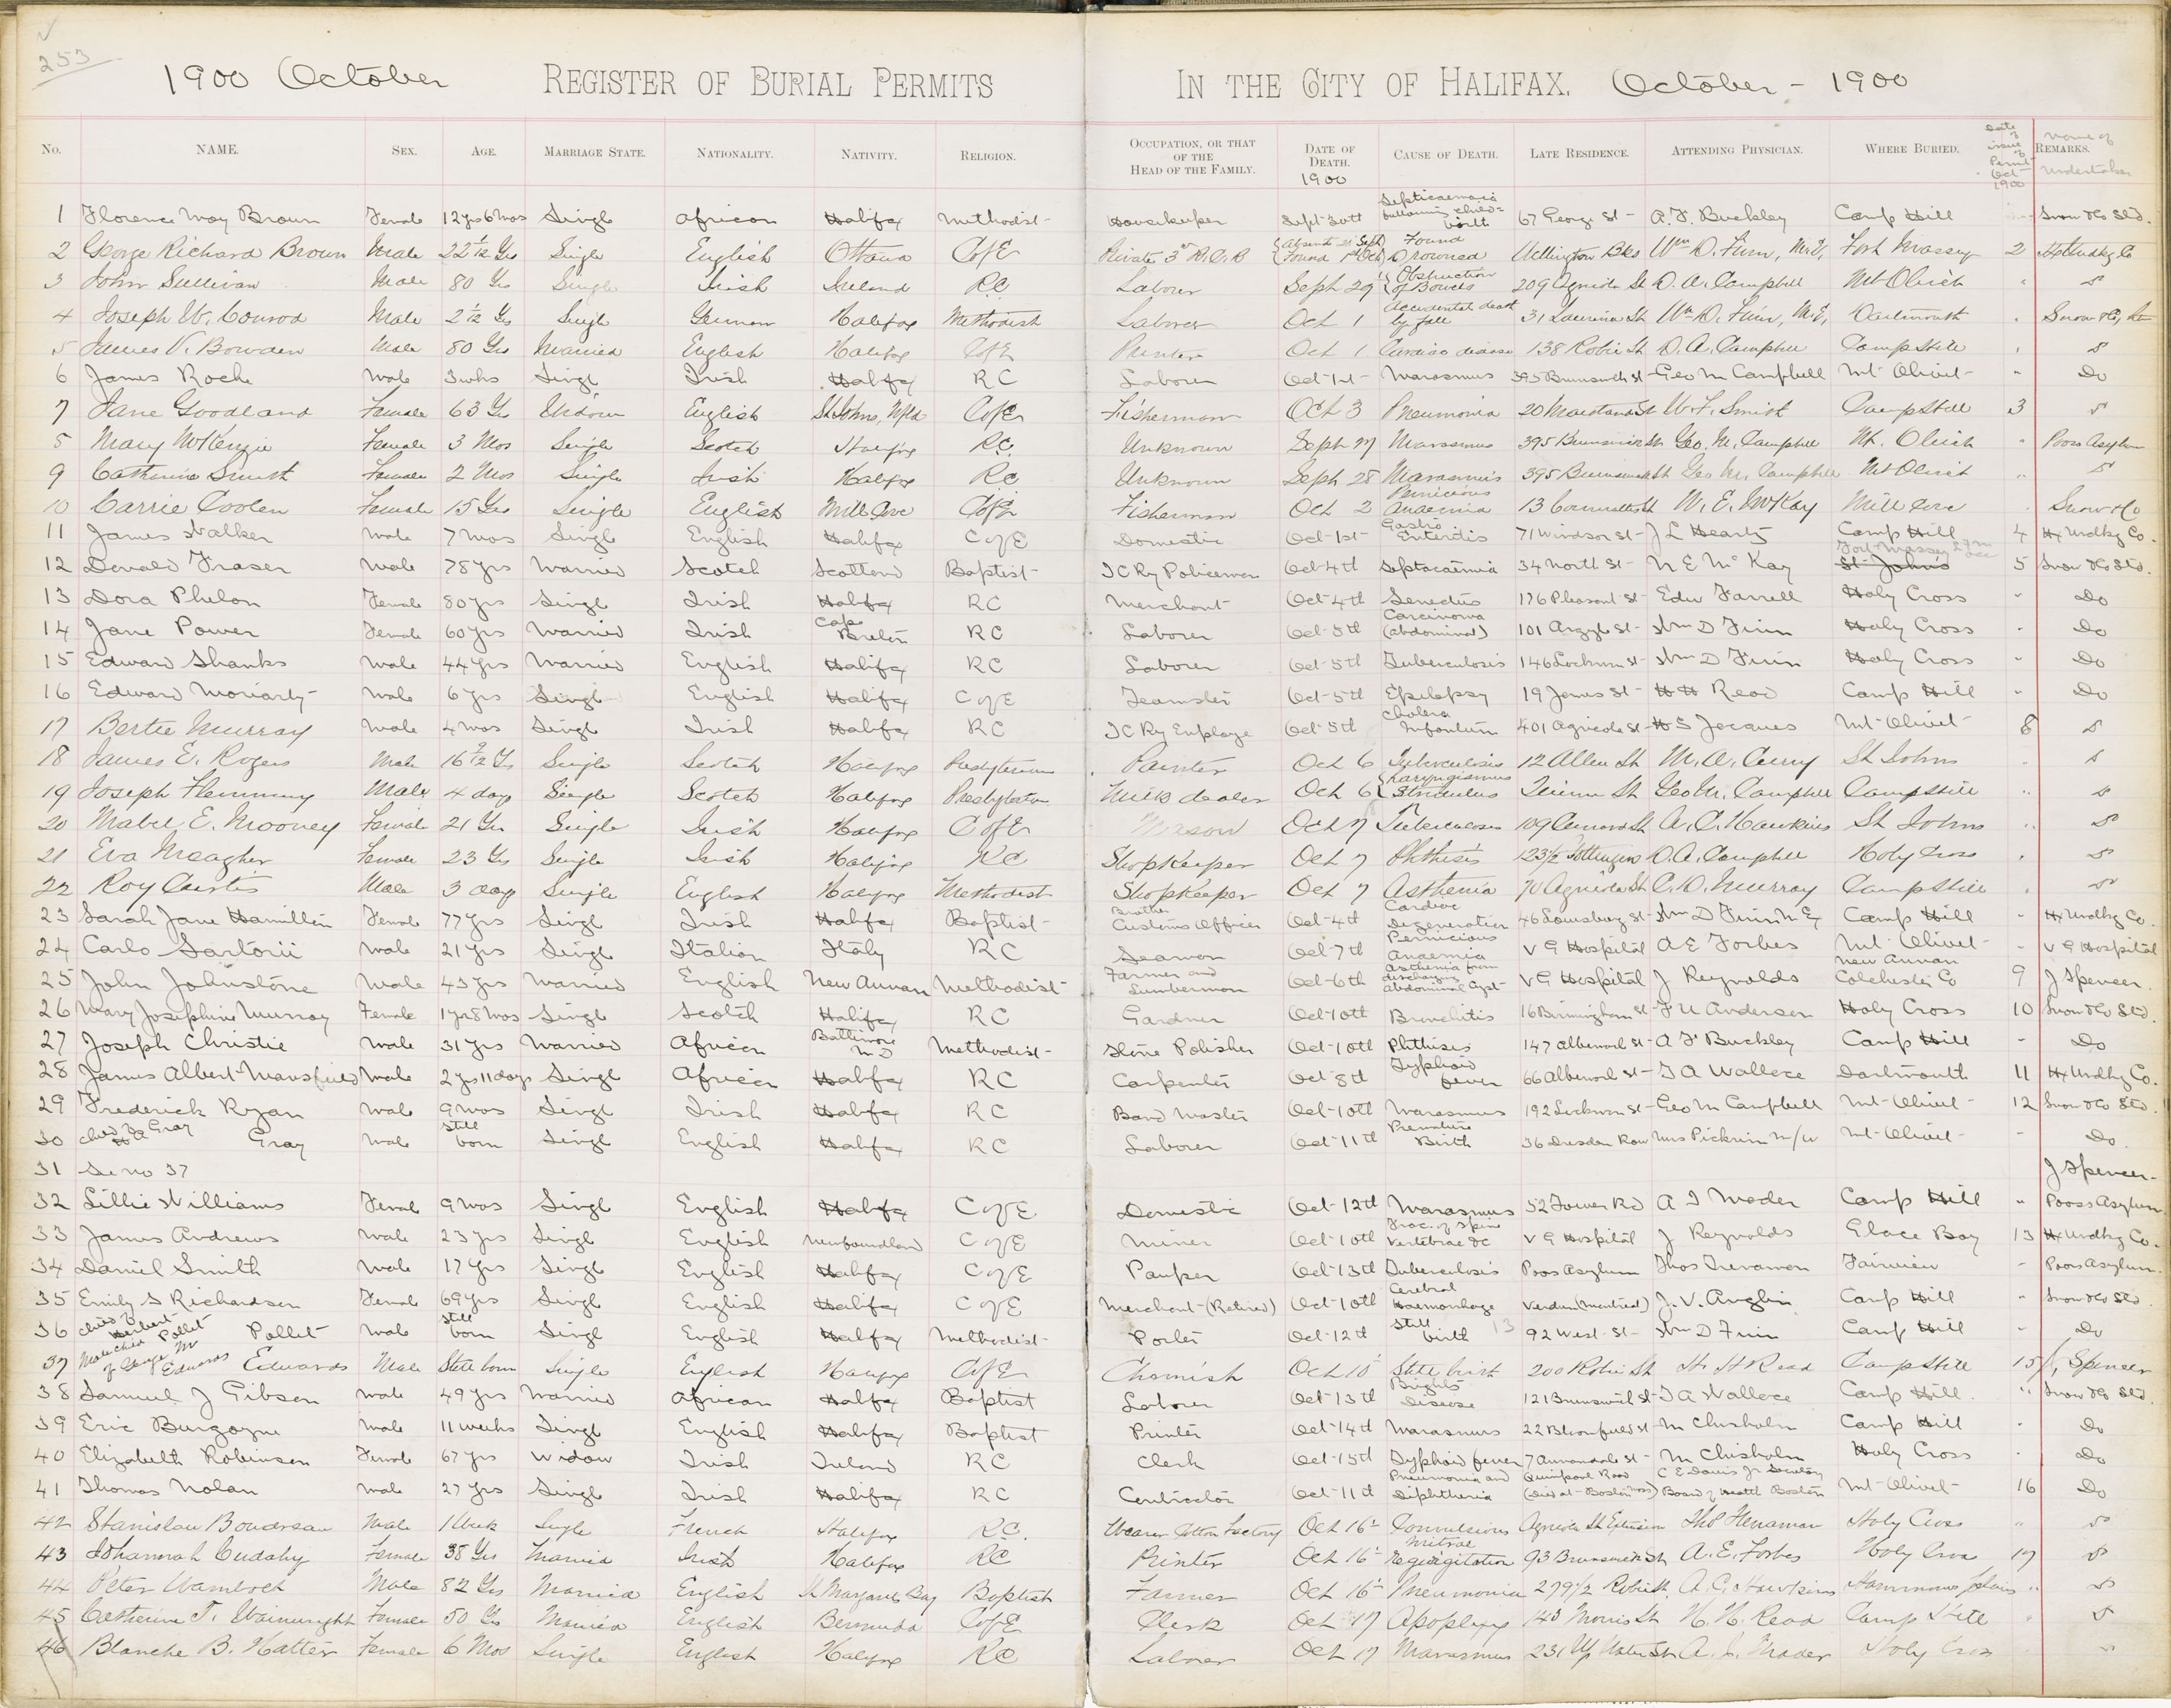 253
1900 October REGISTER OF BURIAL PERMITS IN THE CITY OF HALIFAX. October - 1900
No. NAME. SEX. AGE. MARRIAGE STATE. NATIONALITY. NATIVITY. RELIGION. OCCUPATION, OR THAT OF THE HEAD OF THE FAMILY. DATE OF DEATH. 1900 CAUSE OF DEATH. LATE RESIDENCE. ATTENDING PHYSICIAN. WHERE BURIED. Date of issue of Permit Oct 1900 REMARKS. Name of Undertaker
1 Florence May Brown Female 12 yrs 6 mos Single African Halifax Methodist Housekeeper Sept 30th Septicaemia following child-birth 67 George St A. F. Buckley Camp Hill Snow & Co Ltd.
2 George Richard Brown Male 22 1/12 Yrs Single English Ottawa C of E Private 3rd R.C.R Absent 21 Sept Found 1st Oct Found Drowned Wellington Bks Wm D. Finn, M.E, Fort Massey 2 Hx Undtkg Co
3 John Sullivan Male 80 Yrs Single Irish Ireland R.C. Laborer Sept 29 Obstruction of Bowels 209 Agricola St D. A. Campbell Mt Olivet " "
4 Joseph W. Conrod Male 2 1/12 Yrs Single German Halifax Methodist Laborer Oct 1 Accidental death by fall 31 St Wm D. Finn, M.E, Dartmouth " Snow & Co, Ltd
5 James V. Bowden Male 80 Yrs Married English Halifax C of E Printer Oct 1 Cardiac disease 138 Robie St D. A. Campbell Camp Hill
6 James Roche Male 3 wks Single Irish Halifax R C Laborer Oct 1st Marasmus 395 Brunswick St Geo M Campbell Mt Olivet " Do
7 Jane Goodland Female 63 Yrs Widow English St Johns, Nfld C of E Fisherman Oct 3 Pneumonia 20 Maitland St W. F. Smith Camp Hill 3
8 Mary McKenzie Female 3 Mos Single Scotch Halifax R.C. Unknown Sept 27 Marasmus 395 Brunswick St Geo. M. Campbell Mt. Olivet " Poors Asylum
9 Catherine Smith Female 2 Mos Single Irish Halifax R.C Unknown Sept 28 Marasmus 395 Brunswick St Geo M. Campbell Mt Olivet "
10 Carrie Coolen Female 15 Yrs Single English Mill Cove C of E Fisherman Oct 2 Pernicious Anaemia 13 Cornwallis St W. E. McKay Mill Cove Snow & Co
11 James Walker Male 7 mos Single English Halifax C of E Domestic Oct 1st Gastro Enteritis 71 Windsor St J L Heartz Camp Hill 4 Hx Undtkg Co.
12 Donald Fraser Male 78 yrs Married Scotch Scotland Baptist I C Ry Policeman Oct 4th Septacaemia 34 North St N E McKay St Johns Fort Massey 5 Snow & Co Ltd.
13 Dora Phelan Female 80 yrs Single Irish Halifax R C Merchant Oct 4th Senectus 176 Pleasant St Edw Farrell Holy Cross " Do
14 Jane Power Female 60 yrs Married Irish Cape Breton R C Laborer Oct 5th Carcinoma (abdominal) 101 Argyle St Wm D Finn Holy Cross " Do
15 Edward Shanks Male 44 yrs Married English Halifax R C Laborer Oct 5th Tuberculosis 146 Lockman St Wm D Finn Holy Cross " Do
16 Edward Moriarty Male 6 yrs Single English Halifax C of E Teamster Oct 5th Epilepsy 19 James St H H Read Camp Hill " Do
17 Bertie Murray Male 4 mos Single Irish Halifax R C I C Ry Employe Oct 5th Cholera Infantum 401 Agricola St H S Jacques Mt Olivet 8
18 James E. Rogers Male 16 2/12 Yrs Single Scotch Halifax Presbyterian Painter Oct 6 Tuberculosis 12 Allen St M. A. Curry St Johns
19 Joseph Flemming Male 4 days Single Scotch Halifax Presbyterian Milk dealer Oct 6 Laryngismus Stridulus Quinn St Geo M. Campbell Camp Hill "
20 Mabel E. Mooney Female 21 Yrs Single Irish Halifax C of E Mason Oct 7 Tuberculosis 109 St A. C. Hawkins St Johns "
21 Eva Meagher Female 23 Yrs Single Irish Halifax R C Shopkeeper Oct 7 Phthisis 123 1/2 Gottingen D. A. Campbell Holy Cross
22 Roy Curtis Male 3 days Single English Halifax Methodist Shopkeeper Oct 7 Asthenia 70 Agricola St C. D. Murray Camp Hill
23 Sarah Jane Hamilton Female 77 yrs Single Irish Halifax Baptist Brother Customs Officer Oct 4th Cardiac Degeneration 46 Louisburg St Wm D Finn M E Camp Hill " Hx Undtkg Co.
24 Carlo Sartorii Male 21 yrs Single Italian Italy R C Seaman Oct 7th Pernicious Anaemia V G Hospital A E Forbes Mt Olivet " V G Hospital
25 John Johnstone Male 43 yrs Married English New Annan Methodist Farmer and Lumberman Oct 6th Asthenia from discharging Abdominal Cyst V G Hospital J Reynolds New Annan Colchester Co 9 J Spencer
26 Mary Josephine Murray Female 1 yr 8 mos Single Scotch Halifax R C Gardner Oct 10th Bronchitis 16 Birmingham St F U Anderson Holy Cross 10 Snow & Co Ltd.
27 Joseph Christie Male 31 yrs Married African Baltimore M D Methodist Stone Polisher Oct 10th Phthisis 147 Albemarl St A F Buckley Camp Hill " Do
28 James Albert Mansfield Male 2 yrs 11 days Single African Halifax R C Carpenter Oct 8th Typhoid fever 66 Albemarl St T A Wallace Dartmouth 11 Hx Undtkg Co.
29 Frederick Ryan Male 9 mos Single Irish Halifax R C Band Master Oct 10th Marasmus 192 Lockman St Geo M Campbell Mt Olivet 12 Snow & Co Ltd.
30 child of H A Gray Gray Male Still born Single English Halifax R C Laborer Oct 11th Premature Birth 36 Dresden Row Mrs Pickrin M/W Mt Olivet " Do.
31 See No 37 J Spencer
32 Lillie Williams Female 9 mos Single English Halifax C of E Domestic Oct 12th Marasmus 52 Tower Rd A I Mader Camp Hill " Poors Asylum
33 James Andrews Male 23 yrs Single English Newfoundland C of E Miner Oct 10th Frac. of Spine Vertebrae &c V G Hospital J Reynolds Glace Bay 13 Hx Undtkg Co.
34 Daniel Smith Male 17 yrs Single English Halifax C of E Pauper Oct 13th Tuberculosis Poors Asylum Thos Trenaman Fairview " Poors Asylum.
35 Emily S Richardson Female 69 yrs Single English Halifax C of E Merchant (Retired) Oct 10th Cerebral Haemorrhage Verdun (Montreal) J. V. Anglin Camp Hill " Snow & Co Ltd
36 child of Herbert Pallet Pallet Male Still born Single English Halifax Methodist Porter Oct 12th Still birth 13 92 West St Wm D Finn Camp Hill " Do
37 Male child of George M Edwards Edwards Male Still born Single English Halifax C of E Chemist Oct 10 Still birth 200 Robie St H. H Read Camp Hill 15 J, Spencer
38 Samuel J Gibson Male 49 yrs Married African Halifax Baptist Laborer Oct 13th Brights Disease 121 Brunswick St T A Wallace Camp Hill. " Snow & Co Ltd.
39 Eric Burgoyne Male 11 weeks Single English Halifax Baptist Printer Oct 14th Marasmus 22 Bloomfield St M Chisholm Camp Hill " Do
40 Elizabeth Robinson Female 67 yrs Widow Irish Ireland R C Clerk Oct 15th Typhoid fever 7 Annandale St M Chisholm Holy Cross " Do
41 Thomas Nolan Male 27 yrs Single Irish Halifax R C Contractor Oct 11th Pneumonia and Diphtheria Quinpool Road (Died at Boston Mass) C E Davis Jr Secretary Board of Health Boston Mt Olivet 16 Do
42 Stanislau Boudreau Male 1 Week Single French Halifax R.C. Weaver Cotton Factory Oct 16 Convulsions Agricola St Extension Thos Trenaman Holy Cross "
43 Johannah Cudahy Female 38 Yrs Married Irish Halifax R C Printer Oct 16 Mitral Regurgitation 93 Brunswick St A. E. Forbes Holy Cross 17
44 Peter Wambolt Male 82 Yrs Married English St Margarets Bay Baptist Farmer Oct 16 Pneumonia 279 1/2 Robie St. A. C. Hawkins Hammonds Plains "
45 Catherine T. Wainwright Female 50 Yrs Married English Bermuda C of E Clerk Oct 17 Apoplexy 143 Morris St H. H. Read Camp Hill "
46 Blanche B. Hatter Female 6 Mos Single English Halifax R C Laborer Oct 17 Marasmus 231 Up Water St A. I. Mader Holy Cross